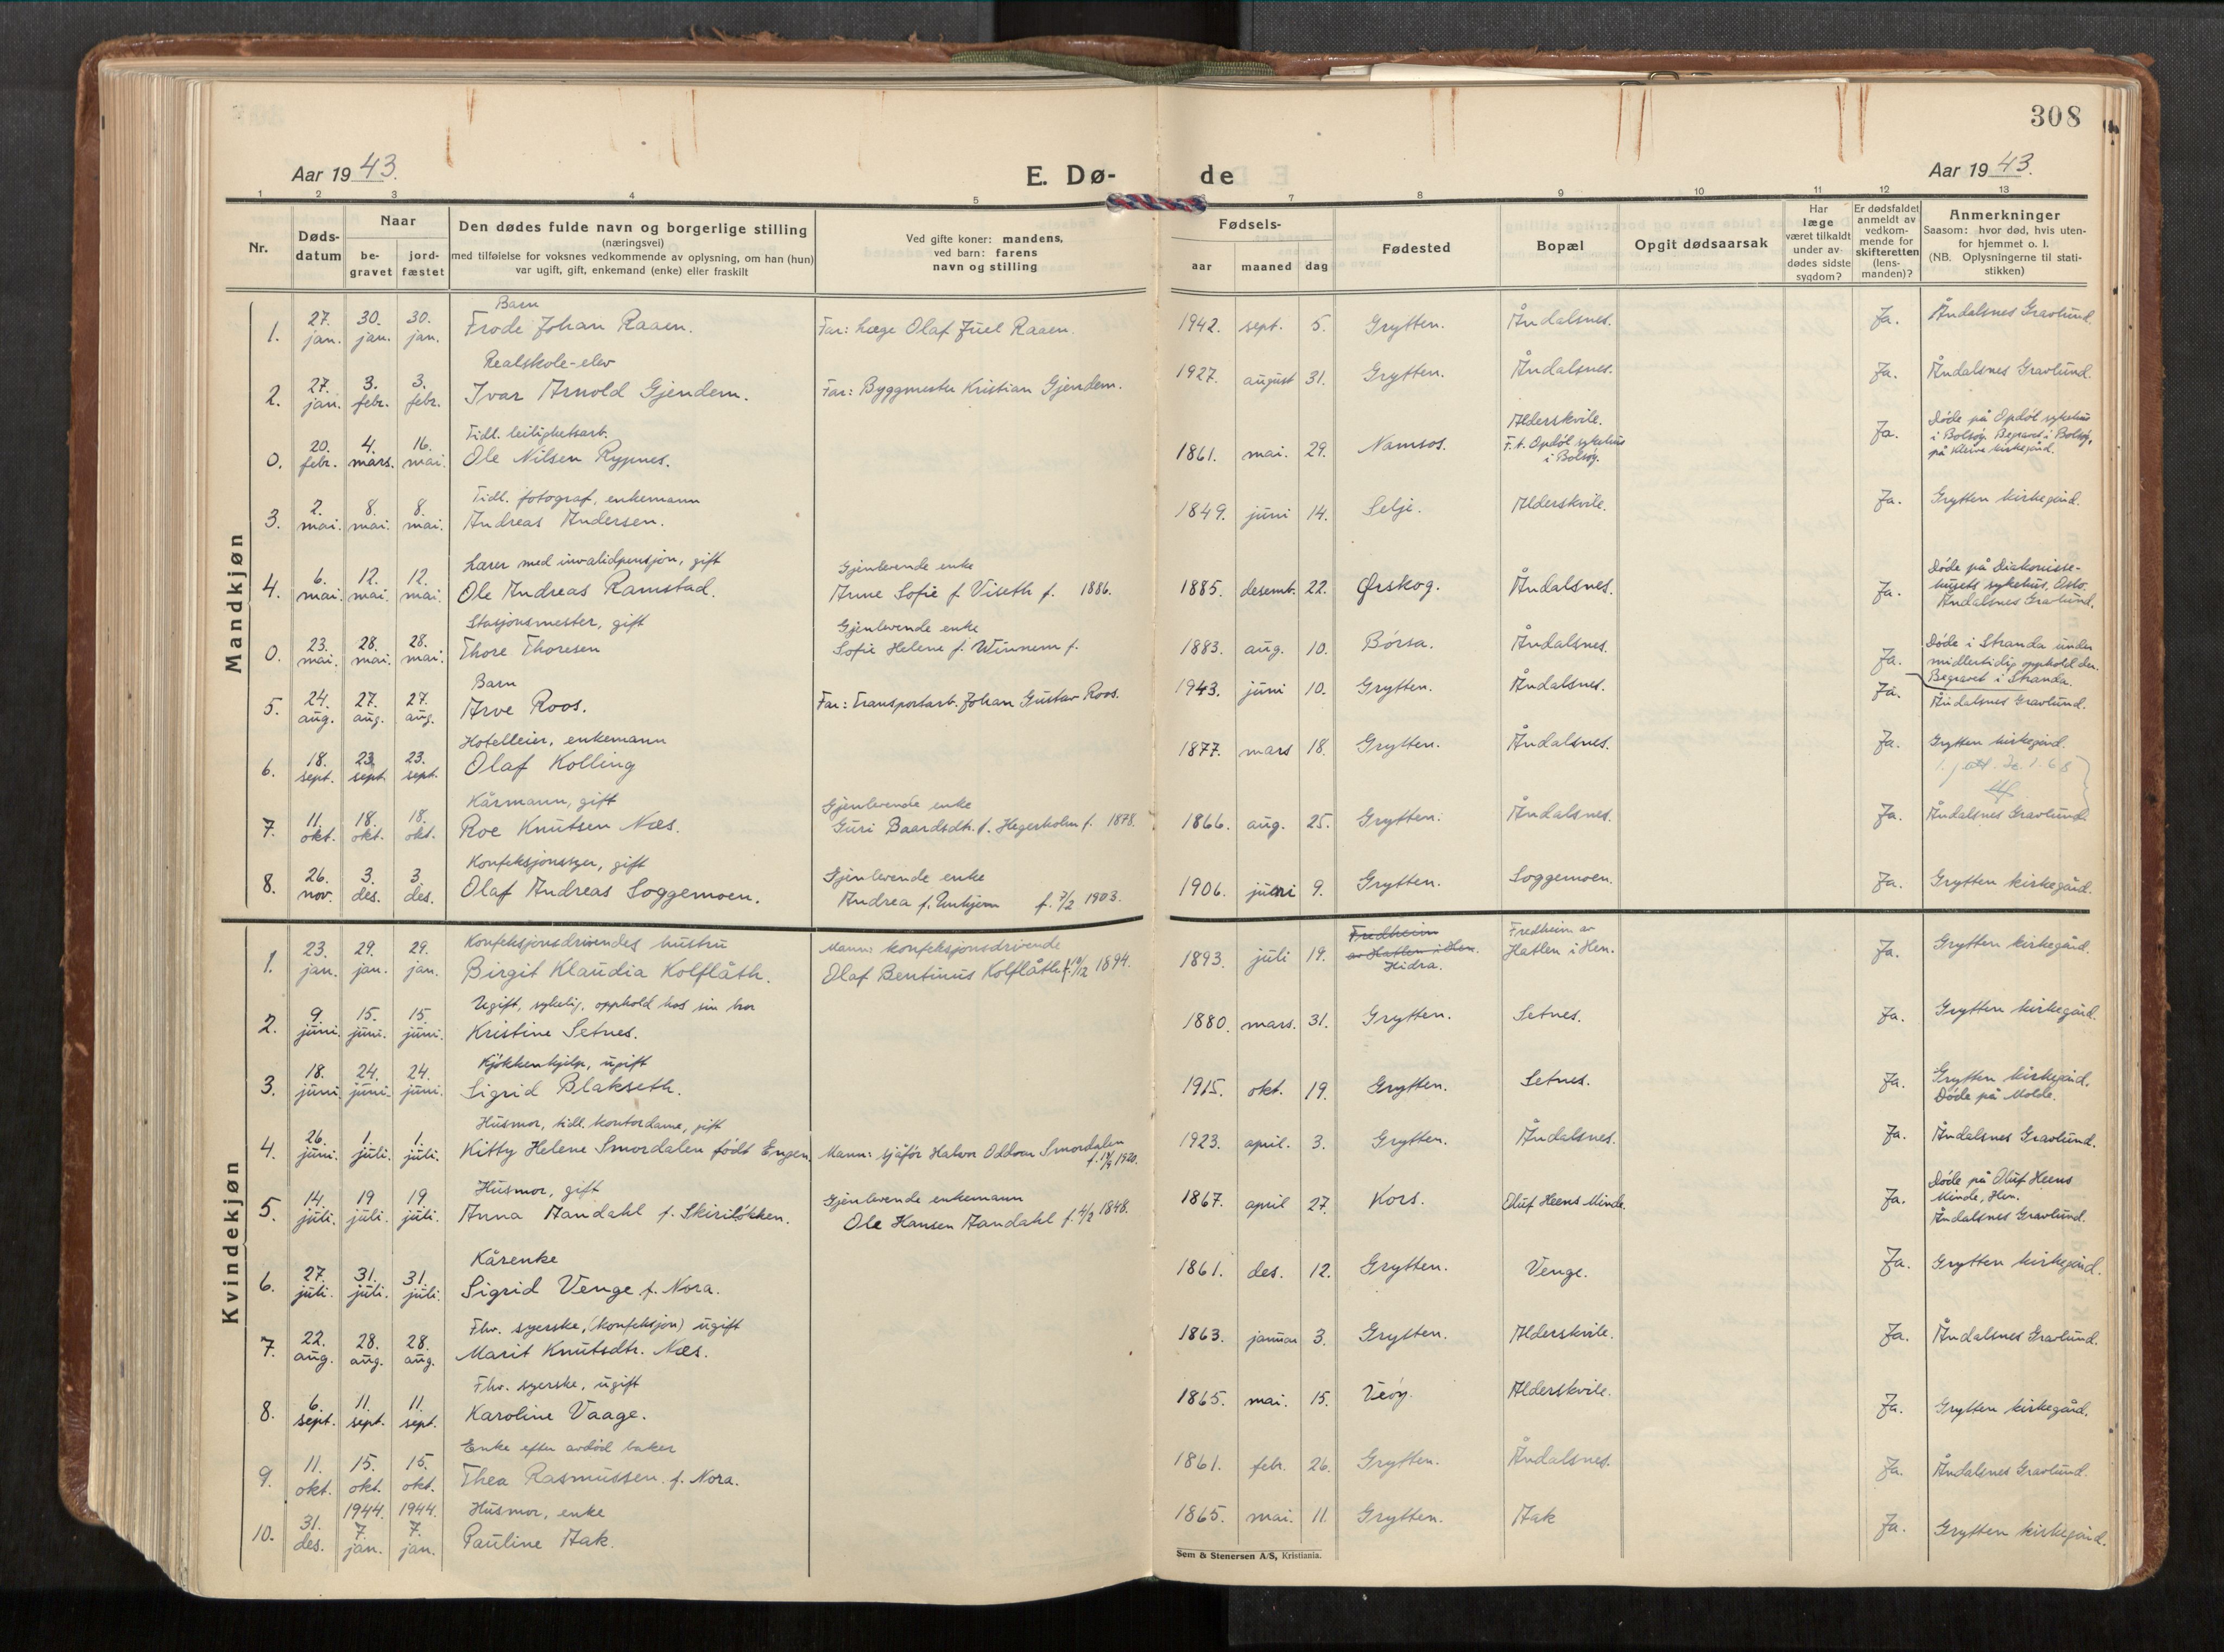 308
Aar 1943.
E. Dø-
de
Aar 1943.
1 2 3 4 5 7 8 9 10 11 12 13
Nr.
Døds-
datum
Naar
be-
gravet
jord-
fæstet
Den dødes fulde navn og borgerlige stilling
(næringsvei)
med tilføielse for voksnes vedkommende av oplysning, om han (hun)
var ugift, gift, enkemand (enke) eller fraskilt
Ved gifte koner: mandens,
ved barn: farens
navn og stilling
Fødsels-
aar maaned dag
Fødested
Bopæl
Opgit dødsaarsak
Har
læge
været tilkaldt
under av-
dødes sidste
sygdom?
Er dødsfaldet
anmeldt av
vedkom-
mende for
skifteretten
(lens-
manden)?
Anmerkninger
Saasom: hvor død, hvis uten-
for hjemmet o. l.
(NB. Oplysningerne til stati-
stikken)
Mandkjøn
Barn
1. 27. jan. 30. jan. 30. jan. Frode Johan Raaen. Far: Læge Olaf Juel Raaen. 1942. sept. 5. Grytten. Åndalsnes. Ja. Åndalsnes Gravlund.
Realskole-elev
2. 27. jan. 3. febr. 3. febr. Ivar Arnold Gjendem. Far: Byggmester Kristian Gjendem. 1927. august 31. Grytten. Åndalsnes. Ja. Åndalsnes Gravlund.
Tidl. leilighetsarb.
0. 20. febr. 4. mars. 16. mai. Ole Nilsen Rypnes. 1861. mai. 29. Namsos. Alderskvile.
F.t. Opdøl sykehus
i Bolsøy. Ja. Døde på Opdøl sykehus
i Bolsøy. Begravet i Bolsøy,
på Kleive kirkegård.
Tidl. fotograf, enkemann
3. 2. mai. 8. mai. 8. mai. Andreas Andersen. 1849. juni 14. Selje. Alderskvile. Ja. Grytten kirkegård.
Lærer med invalidpensjon, gift Gjenlevende enke
4. 6. mai. 12. mai. 12. mai. Ole Andreas Ramstad. Anne Sofie f. Viseth f. 1886. 1885. desemb. 22. Ørskog. Åndalsnes. Ja. Døde på Diakonisse-
husets sykehus, Oslo.
Åndalsnes Gravlund.
Stasjonsmester, gift Gjenlevende enke
0. 23. mai. 28. mai. 28. mai. Thore Thoresen Sofie Helene f. Winnem f. 1883. aug. 10. Børsa. Åndalsnes. Ja. Døde i Stranda under
midlertidig opphold der.
Begravet i Stranda.
Barn
5. 24. aug. 27. aug. 27. aug. Arve Roos. Far: Transportarb. Johan Gustav Roos. 1943. juni 10. Grytten. Åndalsnes. Ja. Åndalsnes Gravlund.
Hotelleier, enkemann
6. 18. sept. 23. sept. 23. sept. Olaf Kolling 1877. mars 18. Grytten. Åndalsnes. Ja. Grytten kirkegård.
Kårmann, gift Gjenlevende enke
7. 11. okt. 18. okt. 18. okt. Roe Knutsen Næs. Guri Baardsdtr. f. Hegerholm f. 1878. 1866. aug. 25. Grytten. Åndalsnes. Ja. Åndalsnes Gravlund.
Konfeksjonssyer, gift Gjenlevende enke
8. 26. nov. 3. des. 3. des. Olaf Andreas Soggemoen. Andrea f. Unhjem f. 7/2 1903. 1906. juni 9. Grytten. Soggemoen. Ja. Grytten kirkegård.
Kvindekjøn
Konfeksjonsdrivendes hustru Mann: konfeksjonsdrivende
1. 23. jan. 29. jan. 29. jan. Birgit Klaudia Kolflåth. Olaf Bentinus Kolflåth f. 19/12 1894. 1893. juli 19. Fredheim
av Hatlen i Hen.
Hidra. Fredheim av
Hatlen i Hen. Ja. Grytten kirkegård.
Ugift, sykelig, opphold hos sin bror
2. 9. juni. 15. juni. 15. juni. Kristine Setnes. 1880. mars. 31. Grytten. Setnes. Ja. Grytten kirkegård.
Kjøkkenhjelp, ugift
3. 18. juni. 24. juni. 24. juni. Sigrid Blakseth. 1915. okt. 19. Grytten. Setnes. Ja. Grytten kirkegård.
Døde på Molde.
Husmor, tidl. kontordame, gift
4. 26. juni. 1. juli. 1. juli. Kitty Helene Smordalen født Engen. Mann: sjåfør Halvor Oddvar Smordalen
1923. april. 3. Grytten. Åndalsnes. Ja. Åndalsnes Gravlund.
Husmor, gift Gjenlevende enkemann
5. 14. juli. 19 juli. 19 juli. Anna Aandahl f. Skiriløkken. Ole Hansen Aandahl f. 4/2 1848. 1867. april 27. Kors. Oluf Heens Minde. Ja. Døde på Oluf Heens
Minde, Hen.
Åndalsnes Gravlund.
Kårenke
6. 27. juli. 31. juli. 31. juli. Sigrid Venge f. Nora. 1861. des. 12. Grytten. Venge. Ja. Grytten kirkegård.
Fhv. syerske, (konfeksjon) ugift
7. 22. aug. 28. aug. 28. aug. Marit Knutsdtr. Næs. 1863. januar 3. Grytten. Alderskvile. Ja. Åndalsnes Gravlund.
Fhv. syerske, ugift
8. 6. sept. 11. sept. 11. sept. Karoline Vaage. 1865. mai. 15. Veøy. Alderskvile. Ja. Grytten kirkegård.
Enke efter avdød baker
9. 11. okt. 15. okt. 15. okt. Thea Rasmussen f. Nora. 1861. febr. 26. Grytten. Åndalsnes. Ja. Åndalsnes Gravlund.
Husmor, enke
10. 31. des. 1944. 7. jan. 1944. 7. jan. Pauline Aak. 1865. mai. 11. Grytten. Aak Ja. Grytten kirkegård.
Sem & Stenersen A/S, Kristiania.